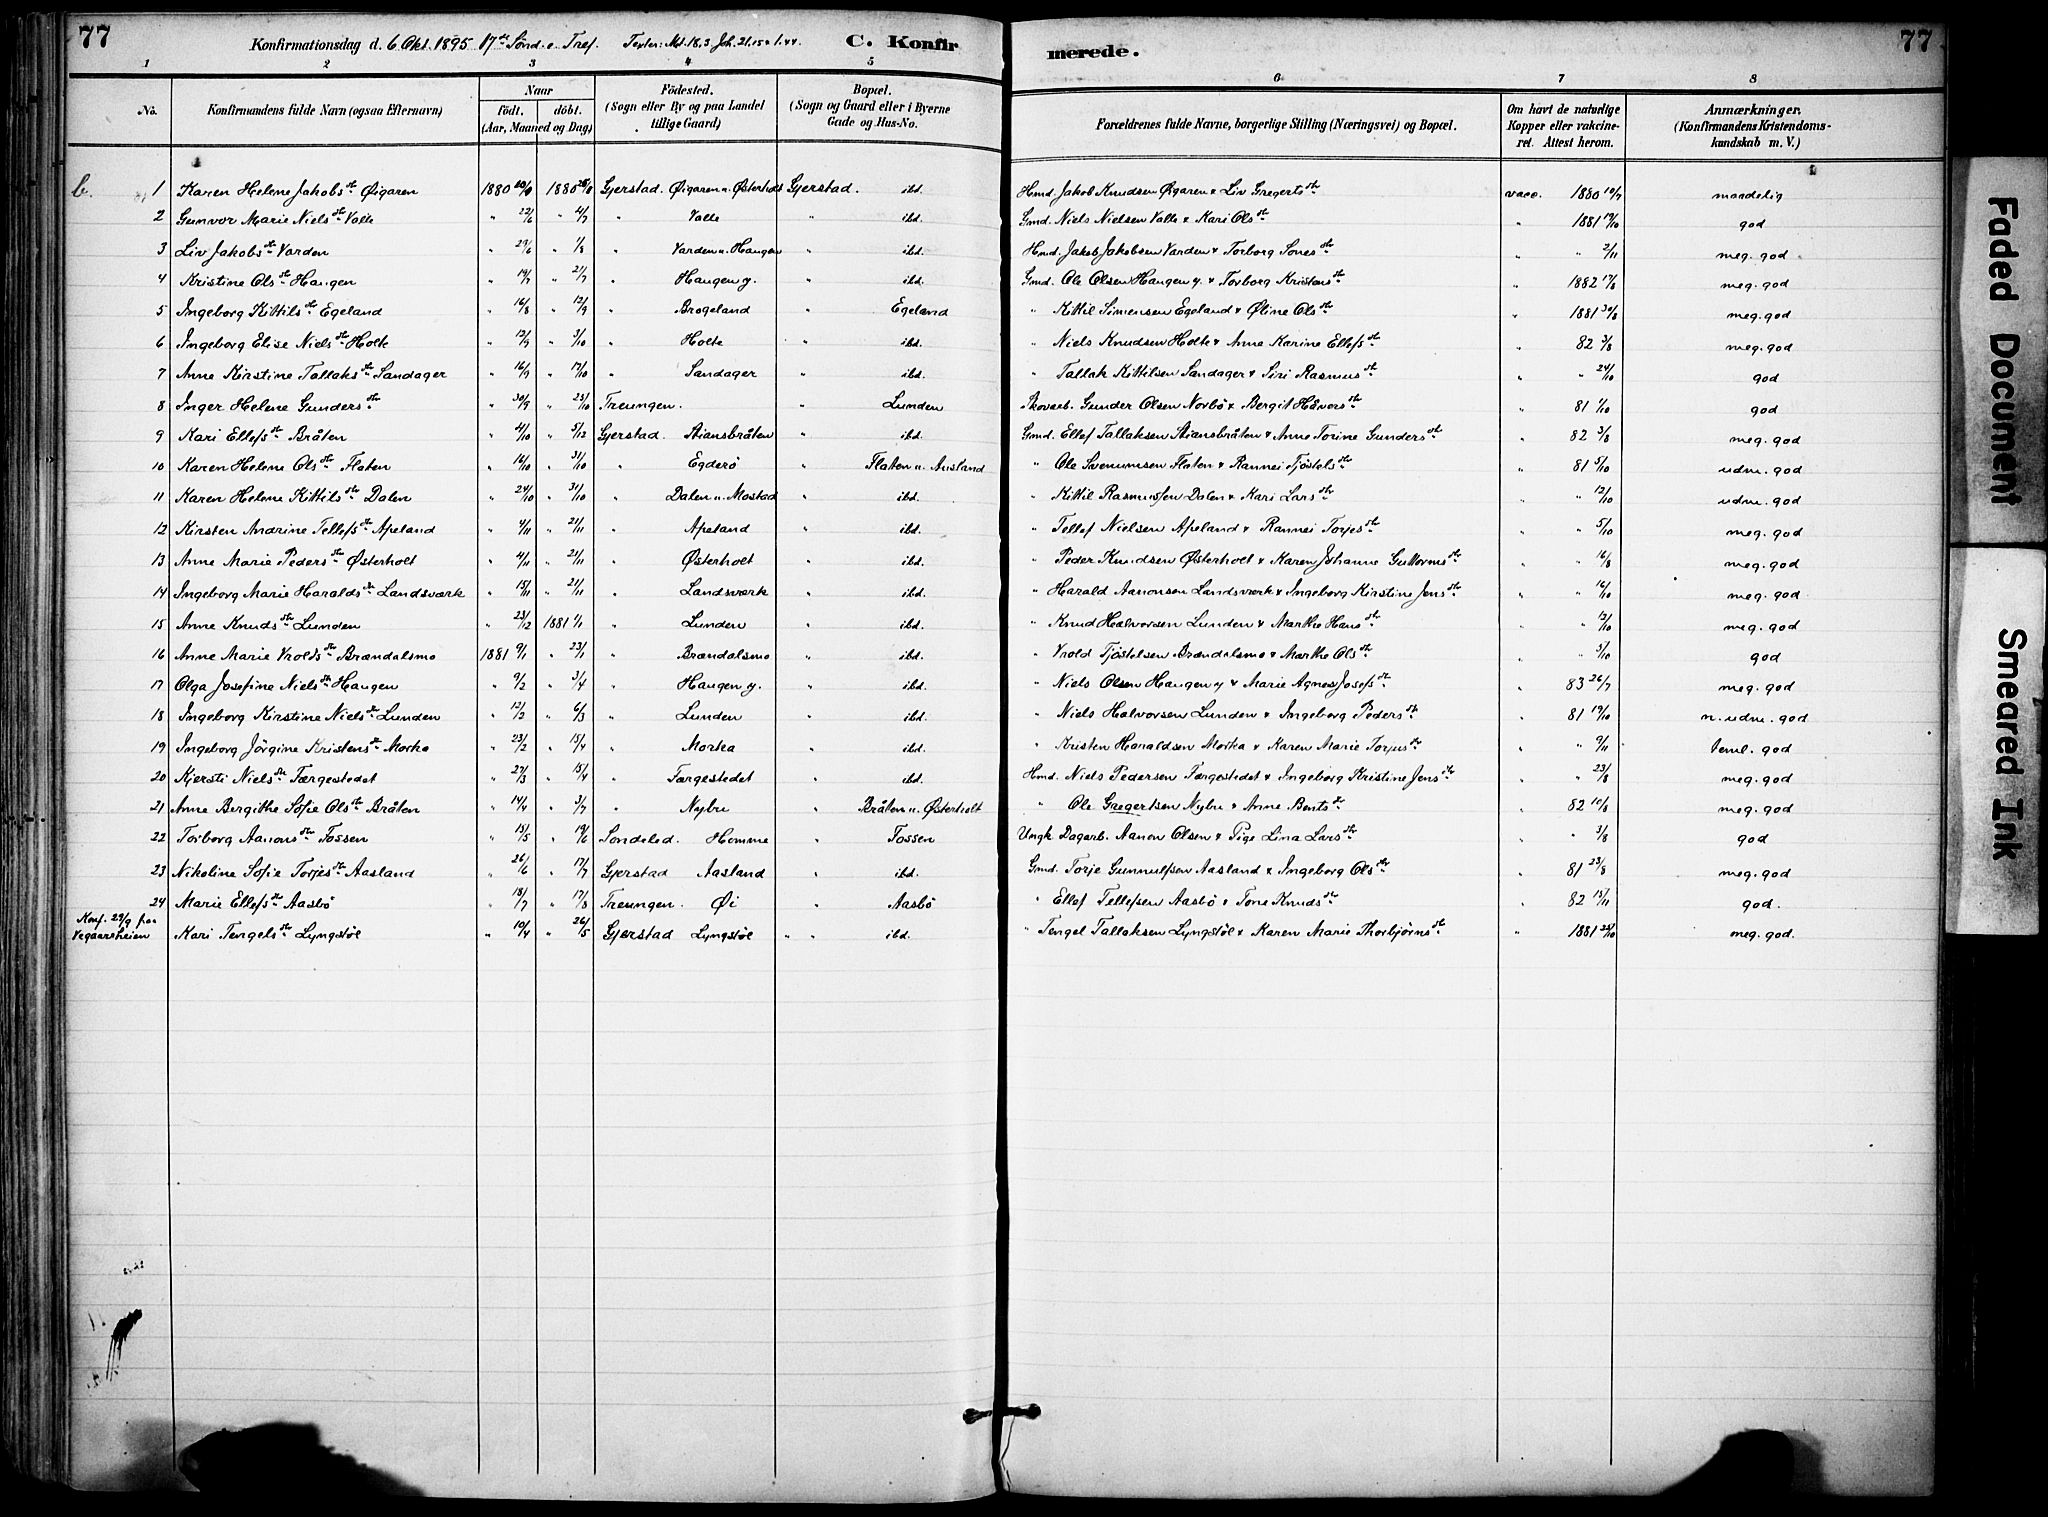 77
Konfirmationsdag d. 6 Okt. 1895 17de Sönd. e. Tref. Texter: Mt. 18.3 Joh. 21.15 C. Konfirmerede. 77
1 2 3 4 5 6 7 8
No. Konfirmandens fulde Navn (ogsaa Efternavn) Naar födt. döbt. (Aar, Maaned og Dag) Födested. (Sogn eller By og paa Landet tillige Gaard) Bopæl. (Sogn og Gaard eller i Byerne Gade og Hus-No. Forældrenes fulde Navne, borgerlige Stilling (Næringsvei) og Bopæl. Om havt de naturlige Kopper eller vakcineret. Attest herom. Anmærkninger. (Konfirmandens Kristendomskundskab m. V.)
b. 1 Karen Helene Jakobsdtr Øigaren 1880 1880 Gjerstad. Øigaren u. Østerholt Gjerstad. ibd. Hmd. Jakob Knudsen Øigaren & Liv Gregertsdtr vacc. 1880 10/7 maadelig
2 Gunvor Marie Nielsdtr Valle " 22/6 " 4/7 " Valle " ibd. Gmd. Niels Nielsen Valle & Kari Olsdtr " 1881 19/10 god
3 Liv Jakobsdtr Varden " 29/6 " 1/8 " Varden u. Haugen " ibd. Hmd. Jakob Jakobsen Varden & Torborg Sonesdtr " " 2/11 meg. god
4 Kristine Olsdtr Haugen " 19/7 " 21/7 " Haugen y. " ibd. Gmd. Ole Olsen Haugen y. & Torborg Kristensdtr " 1882 17/8 meg. god
5 Ingeborg Kittilsdtr Egeland " 16/8 " 12/9 " Brogeland " Egeland " Kittil Simensen Egeland & Øline Olsdtr " 1881 30/8 meg. god
6 Ingeborg Elise Nielsdtr Holte " 12/9 " 3/10 " Holte " ibd. " Niels Knudsen Holte & Anne Karine Ellefsdtr " 82 3/8 meg. god
7 Anne Kirstine Tallaksdtr Sandager " 16/9 " 17/10 " Sandager " ibd. " Tallak Kittilsen Sandager & Siri Rasmusdtr " " 24/10 god
8 Inger Helene Gundersdtr " 30/9 " 23/10 Treungen. " Lunden Skovarb. Gunder Olsen Norbö & Bergit Håvorsdtr " 81 1/10 god
9 Kari Ellefsdtr Bråten " 4/10 " 5/12 Gjerstad. Stiansbråten " ibd. Gmd. Ellef Tallaksen Stiansbråten & Anne Torine Gundersdtr " 82 3/8 meg. god
10 Karen Helene Olsdtr Flaten " 16/10 " 31/10 " Egderö " Flaten u. Ausland " Ole Svenumsen Flaten & Rannei Tjöstelsdtr " 81 5/10 udm. god
11 Karen Helene Kittilsdtr Dalen " 24/10 " 31/10 " Dalen u. Mostad " ibd. " Kittil Rasmussen Dalen & Kari Larsdtr " " 12/10 udm. god
12 Kirsten Andrine Tellefsdtr Apeland " 4/11 " 21/11 " Apeland " ibd. " Tellef Nielsen Apeland & Rannei Torjesdtr " " 5/10 meg. god
13 Anne Marie Pedersdtr Østerholt " 4/11 " 21/11 " Østerholt " ibd. " Peder Knudsen Østerholt & Karen Johanne Guttormsdtr " " 16/8 meg. god
14 Ingeborg Marie Haraldsdtr Landsværk " 15/11 " 21/11 " Landsværk " ibd. " Harald Aanonsen Landsværk & Ingeborg Kirstine Jensdtr " " 16/10 meg. god
15 Anne Knudsdtr Lunden " 23/12 1881 1/1 " Lunden " ibd. " Knud Halvorsen Lunden & Marthe Hansdtr " " 12/10 meg. god
16 Anne Marie Vroldsdtr Brændalsmo 1881 9/1 " 23/1 " Brændalsmo " ibd. " Vrold Tjöstelsen Brændalsmo & Marthe Olsdtr " " 5/10 god
17 Olga Josefine Nielsdtr Haugen " 9/2 " 3/4 " Haugen y. " ibd. " Niels Olsen Haugen y & Marie Agnes Josefsdtr " 83 26/7 meg. god
18 Ingeborg Kirstine Nielsdtr Lunden " 12/2 " 6/3 " Lunden " ibd. " Niels Halvorsen Lunden & Ingeborg Pedersdtr " 81 19/10 n. udm. god
19 Ingeborg Jörgine Kristensdtr Morka " 23/2 " 15/4 " Morka " ibd. " Kristen Haraldsen Morka & Karen Marie Torjusdtr " " 9/11 teml. god
20 Kjersti Nielsdtr Færgestedet " 27/3 " 15/4 " Færgestedet " ibd. Hmd. Niels Pedersen Færgestedet & Ingeborg Kristine Jensdtr " " 23/8 meg. god
21 Anne Bergithe Sofie Olsdtr Bråten " 14/4 " 3/7 " Nybu " Bråten u. Østerholt " Ole Gregertsen Nybu & Anne Bentsdtr " 82 10/8 meg. god
22 Torborg Aanonsdtr Fossen " 15/5 " 19/6 Söndeled. Homme " Fossen Ungk. Dagarb. Aanon Olsen & Pige Lina Larsdtr " " 3/8 god
23 Nikoline Sofie Torjesdtr Aasland " 26/6 " 17/7 Gjerstad Aasland " ibd. Gmd. Torje Gunnulfsen Aasland & Ingeborg Olsdtr " 81 23/8 meg. god
24 Marie Ellefsdtr Aasbö " 18/7 " 17/8 Treungen. Øi " Aasbö " Ellef Tellefsen Aasbö & Tone Knudsdtr " 82 15/11 god.
Konf. 29/9 paa Vegaarsheien Kari Tengelsdtr Lyngstöl " 10/4 " 26/5 Gjerstad Lyngstöl " " ibd. " Tengel Tallaksen Lyngstöl & Karen Marie Thorbjørnsdtr " 1881 25/10 meg. god.
Faded Document
Smeared Ink